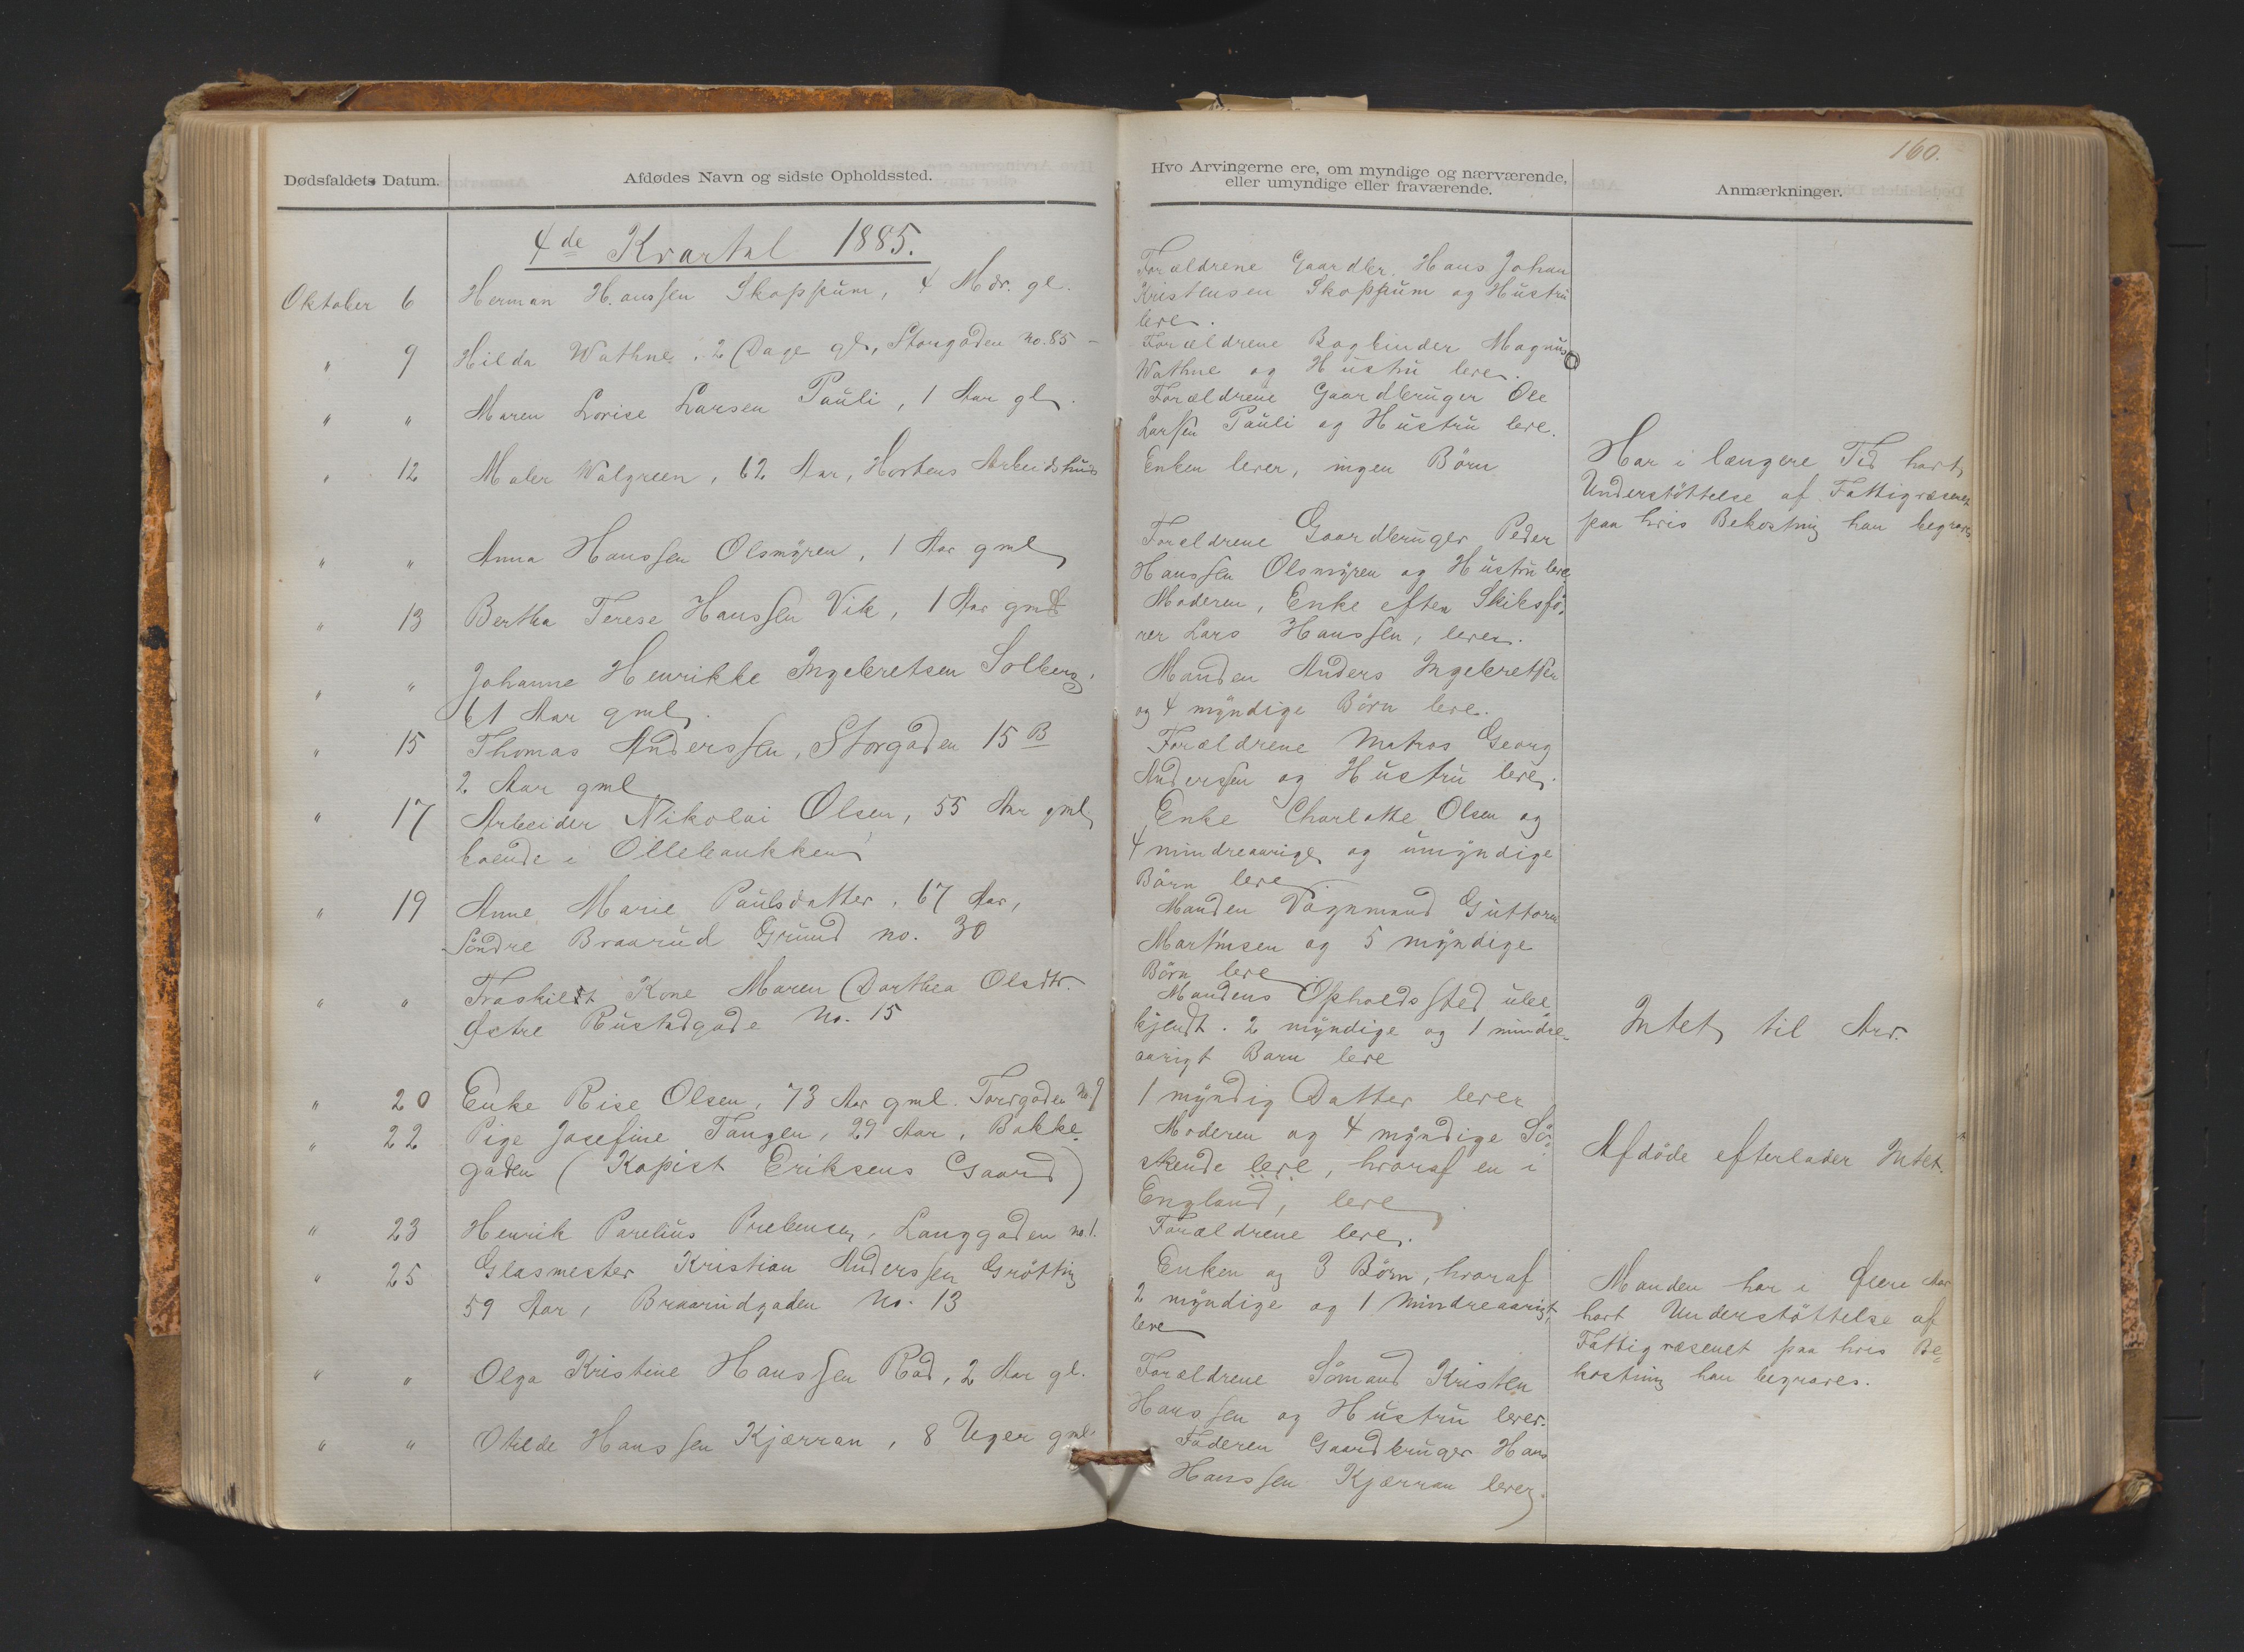 160.
Dødsfaldets Datum.
Afdødes Navn og sidste Opholdssted.
Hvo Arvingerne ere, om myndige og nærværende,
eller umyndige eller fraværende.
Anmærkninger.
4de Kvartal 1885.
Oktober 6 Herman Hanssen Skoppum, 4 Mdr. gl.
Forældrene Gaardbr. Hans Johan
Kristensen Skoppum og Hustru
leve.
" 9 Hilda Wathne, 2 Dage gl., Storgaden No. 85
Forældrene Bogbinder Magnus
Wathne og Hustru leve.
" " Maren Lovise Larsen Pauli, 1 Aar gl.
Forældrene Gaardbruger Ole
Larsen Pauli og Hustru leve.
" 12 Maler Walgreen, 62 Aar, Hortens Arbeidshus
Enken lever, ingen Börn
Har i længere Tid havt
Understöttelse af Fattigvæsenet
paa hvis Bekostning han begraves
" " Anna Hanssen Olsmyren, 1 Aar gml
Forældrene Gaardbruger Peder
Hanssen Olsmyren og Hustru leve
" 13 Bertha Terese Hanssen Vik, 1 Aar gml
Moderen, Enke efter Skibsfö-
rer Lars Hanssen, lever.
" " Johanne Henrikke Ingebretsen Solberg,
61 Aar gml.
Manden Anders Ingebretsen
og 4 myndige Börn leve.
" 15 Thomas Anderssen, Storgaden 15 B
2 Aar gml
Forældrene Matros Georg
Anderssen og Hustru leve.
" 17 Arbeider Nikolai Olsen, 55 Aar gml
boende i Ollebaukken
Enke Charlotte Olsen og
4 mindreaarige og umyndige
Börn leve.
" 19 Anne Marie Paulsdatter, 67 Aar,
Söndre Braarud Grund no. 30
Manden Vognmand Guttorm
Martinsen og 5 myndige
Börn leve
" " Fraskilt Kone Maren Dorthea Olsdtr.
Østre Rustadgade No. 15
Mandens Opholdssted ube
kjendt. 2 myndige og 1 mindre-
aarigt Barn leve
Intet til Arv.
" 20 Enke Rise Olsen, 73 Aar gml. Torvgaden No. 9
1 myndig Datter lever
" 22 Pige Josefine Tangen, 29 Aar, Bakke-
gaden (Kopist Eriksens Gaard)
Moderen og 4 myndige Sö-
skende leve, hvoraf en i
England, leve.
Afdöde efterlader Intet.
" 23 Henrik Parelius Prebensen, Langgaden no. 1.
Forældrene leve.
" 25 Glasmester Kristian Anderssen Grötting
59 Aar, Braarudgaden No. 13
Enken og 3 Börn, hvoraf
2 myndige og 1 mindreaarigt,
leve
Manden har i flere Aar
havt Understöttelse af
Fattigvæsenet paa hvis Be-
kostning han begraves.
" " Olga Kristine Hanssen Rød, 2 Aar gl.
Forældrene Sömand Kristen
Hanssen og Hustru lever.
" " Otilde Hanssen Kjærran, 8 Uger gml
Faderen Gaardbruger Hans
Hanssen Kjærran lever.